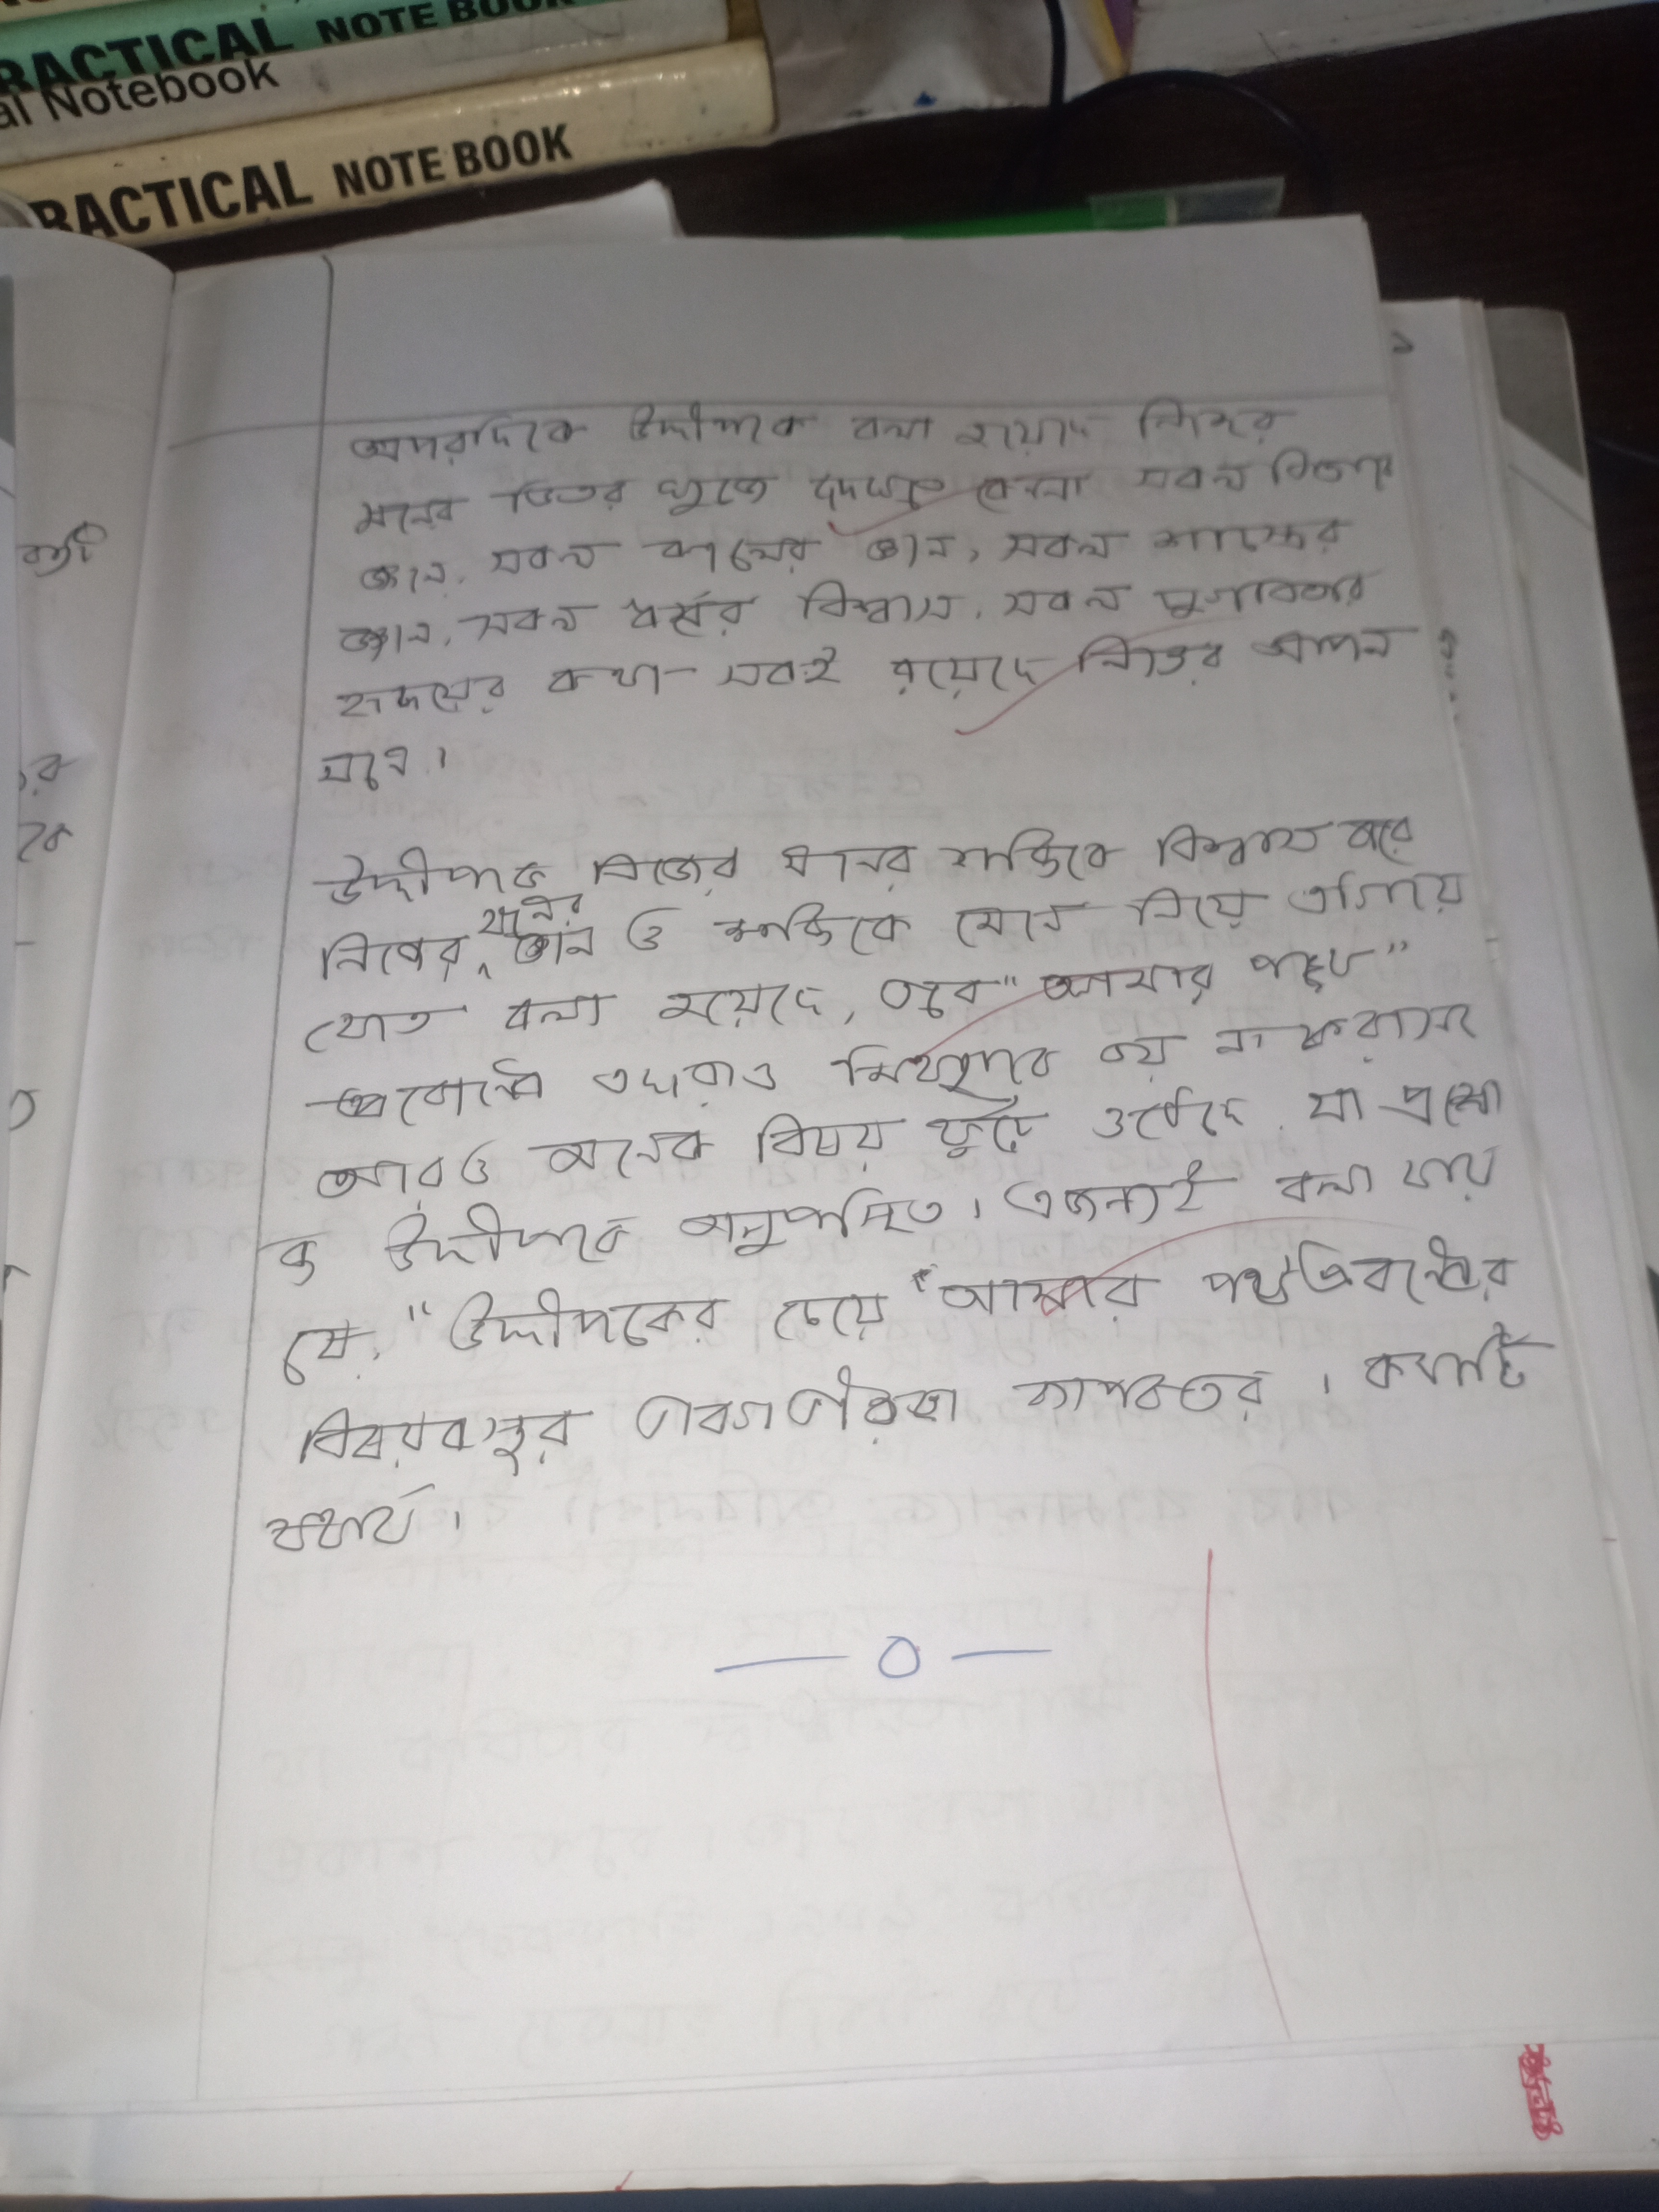 RACTICAL NOTE BOOK
al Notebook
RACTICAL NOTE BOOK
অপরদিকে উদ্দীপকে বলা হয়েছে নিজের
মনের ভিতর খুজে দেখতে কেননা সকল
জ্ঞান, সকল কালের জ্ঞান, সকল শাস্ত্রের
জ্ঞান, সকল ধর্মের বিশ্বাস, সকল যুগাবতার
হৃদয়ের কথা সবই রয়েছে নিজের আপন
মনে।
উদ্দীপকে নিজের মনের শক্তিকে বিশ্বাস করে
নিজের মনের জ্ঞান ও শক্তিকে মেনে নিয়ে এগিয়ে
যেতে বলা হয়েছে, তবে "আমার পথ"
প্রবন্ধে এছাড়াও মিথ্যাকে ভয় না করাসহ
আরও অনেক বিষয় ফুটে ওঠেছে, যা
ক উদ্দীপকে অনুপস্থিত। এজন্যই বলা যায়
যে, "উদ্দীপকের চেয়ে "আমার পথ" প্রবন্ধের
বিষয়বস্তুর ব্যাপকতর। কথাটি
যথার্থ।
— ০ —